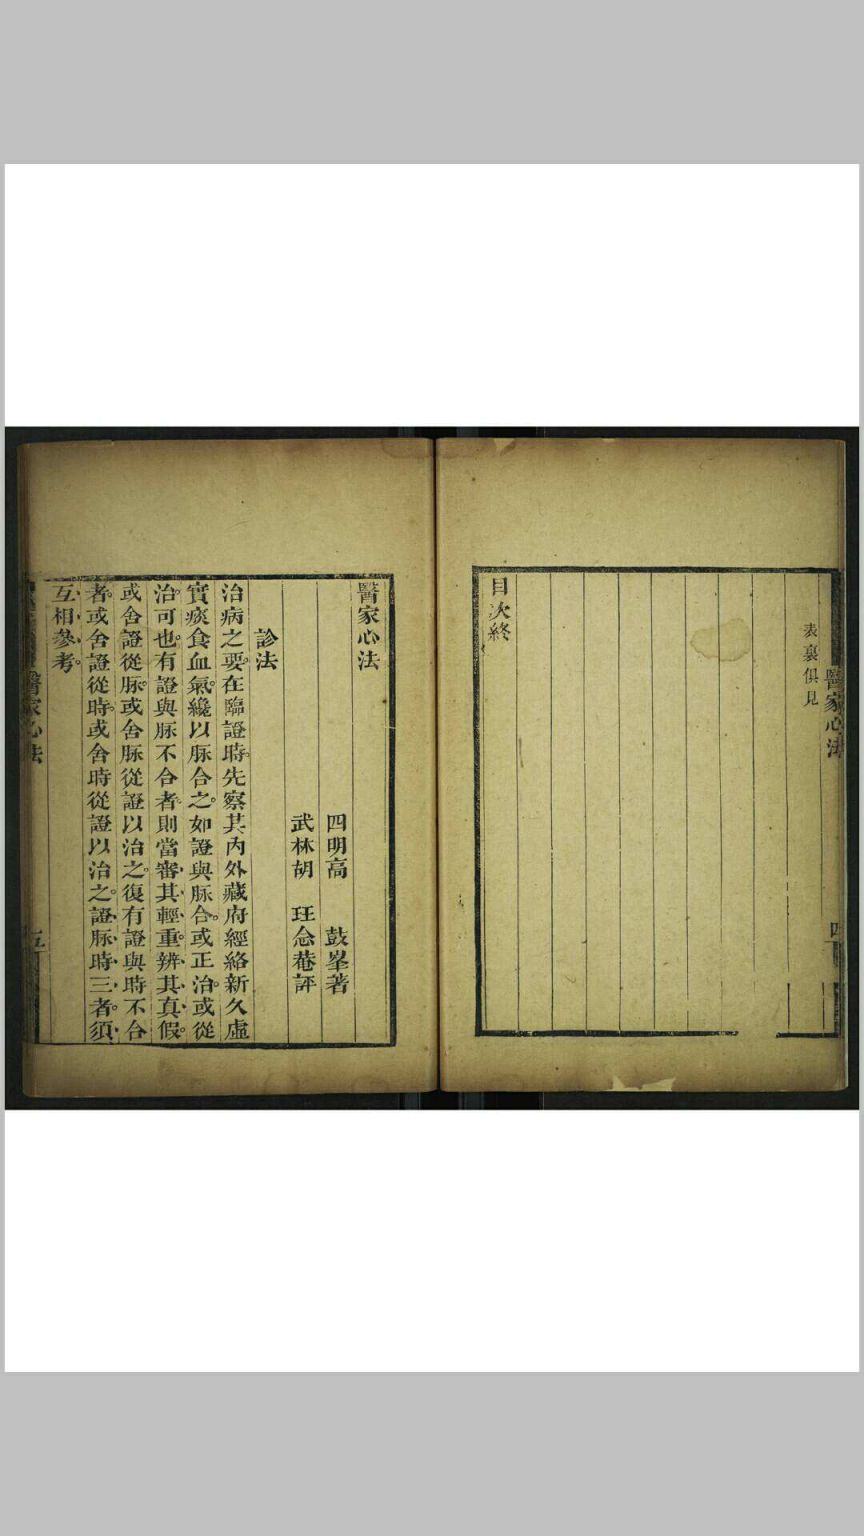 表裏俱見
目次終
醫家心法
四
醫家心法
四明高　鼓峯著
武林胡　玨念菴評
診法
治病之要。在臨證時。先察其內外藏府經絡新久虛
實痰食血氣。纔以脈合之。如證與脈合。或正治。或從
治。可也。有證與脈不合者。則當審其輕重。辨其真假。
或舍證從脈。或舍脈從證以治之。復有證與時不合
者。或舍證從時。或舍時從證以治之。證脈時三者。須
互相參考。
醫家心法
五